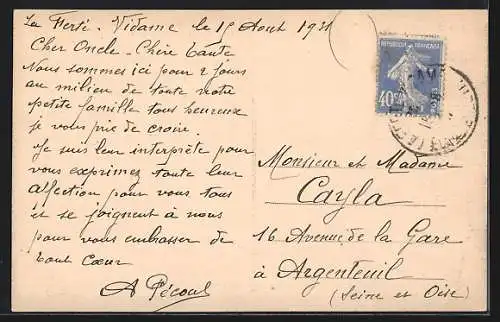 La Ferté-Vidame le 15 Aout 1931
Cher Oncle - Chère Tante
Nous sommes ici pour 2 jours
au milieu de toute notre
petite famille tous heureux
je vous prie de croire.
Je suis leur interprète pour
vous exprimez toute leur
affection pour vous tous
et se joignent à nous
pour vous embrasser de
tout Cœur
A Pécoul
REPUBLIQUE FRANÇAISE
40c
Monsieur et Madame
Cayla
16 Avenue de la Gare
à Argenteuil
(Seine et Oise)